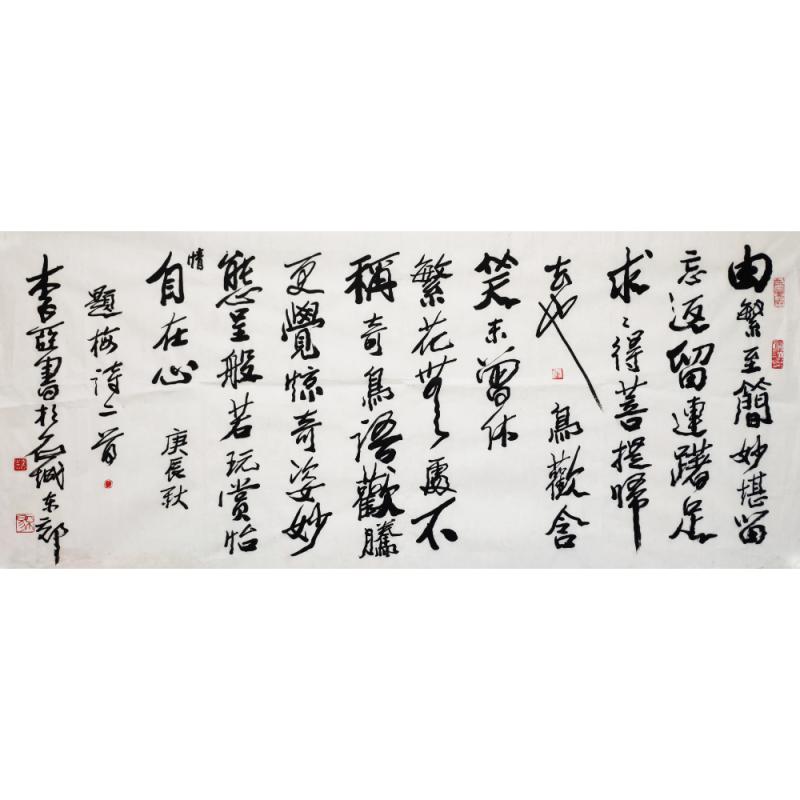 由繁至簡妙堪留
忘返留連躇足
求〻得菩提啼
去也 鳥歡含
笑未曾休
繁花無處不
稱奇鳥語歡騰
更覺惊奇姿妙
態呈般若玩賞怡
情自在心 庚辰秋
題梅詩二首
書於石城东郊